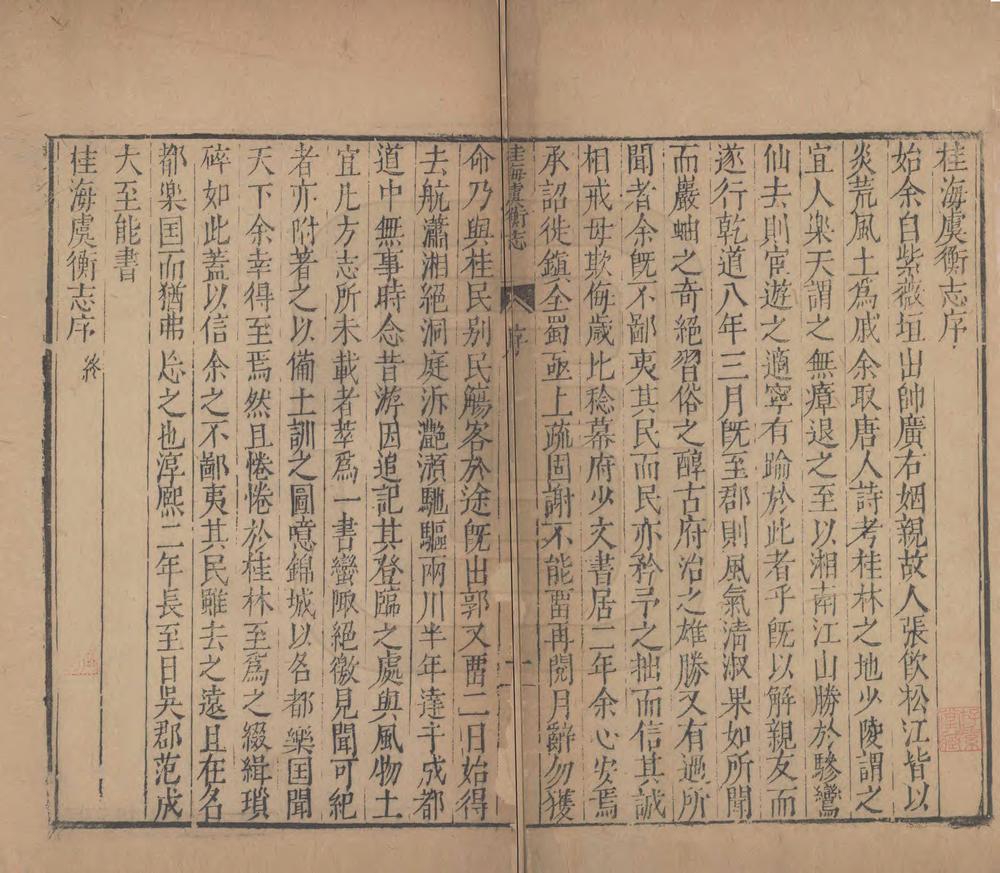 桂海虞衡志序
始余自紫薇垣出帥廣右姻親故人張飲松江皆以
炎荒風土爲戚余取唐人詩考桂林之地少陵謂之
宜人樂天謂之無瘴退之至以湘南江山勝於驂鸞
仙去則宦遊之適寧有踰於此者乎旣以解親友而
遂行乾道八年三月旣至郡則風氣清淑果如所聞
而巖岫之奇絕習俗之醇古府治之雄勝又有過所
聞者余旣不鄙夷其民而民亦矜予之拙而信其誠
相戒毋欺侮歲比稔幕府少文書居二年余心安焉
承詔徙鎮全蜀亟上疏固謝不能畱再閱月辭勿獲
桂海虞衡志 序 一
命乃與桂民别民觴客於途旣出郭又畱二日始得
去航瀟湘絕洞庭泝灩澦馳驅兩川半年達于成都
道中無事時念昔游因追記其登臨之處與風物土
宜凡方志所未載者萃爲一書蠻陬絕徼見聞可紀
者亦附著之以備土訓之圖噫錦城以名都樂囯聞
天下余幸得至焉然且惓惓於桂林至爲之綴緝瑣
碎如此蓋以信余之不鄙夷其民雖去之遠且在名
都樂囯而猶弗忘之也淳熙二年長至日吳郡范成
大至能書
桂海虞衡志序 終